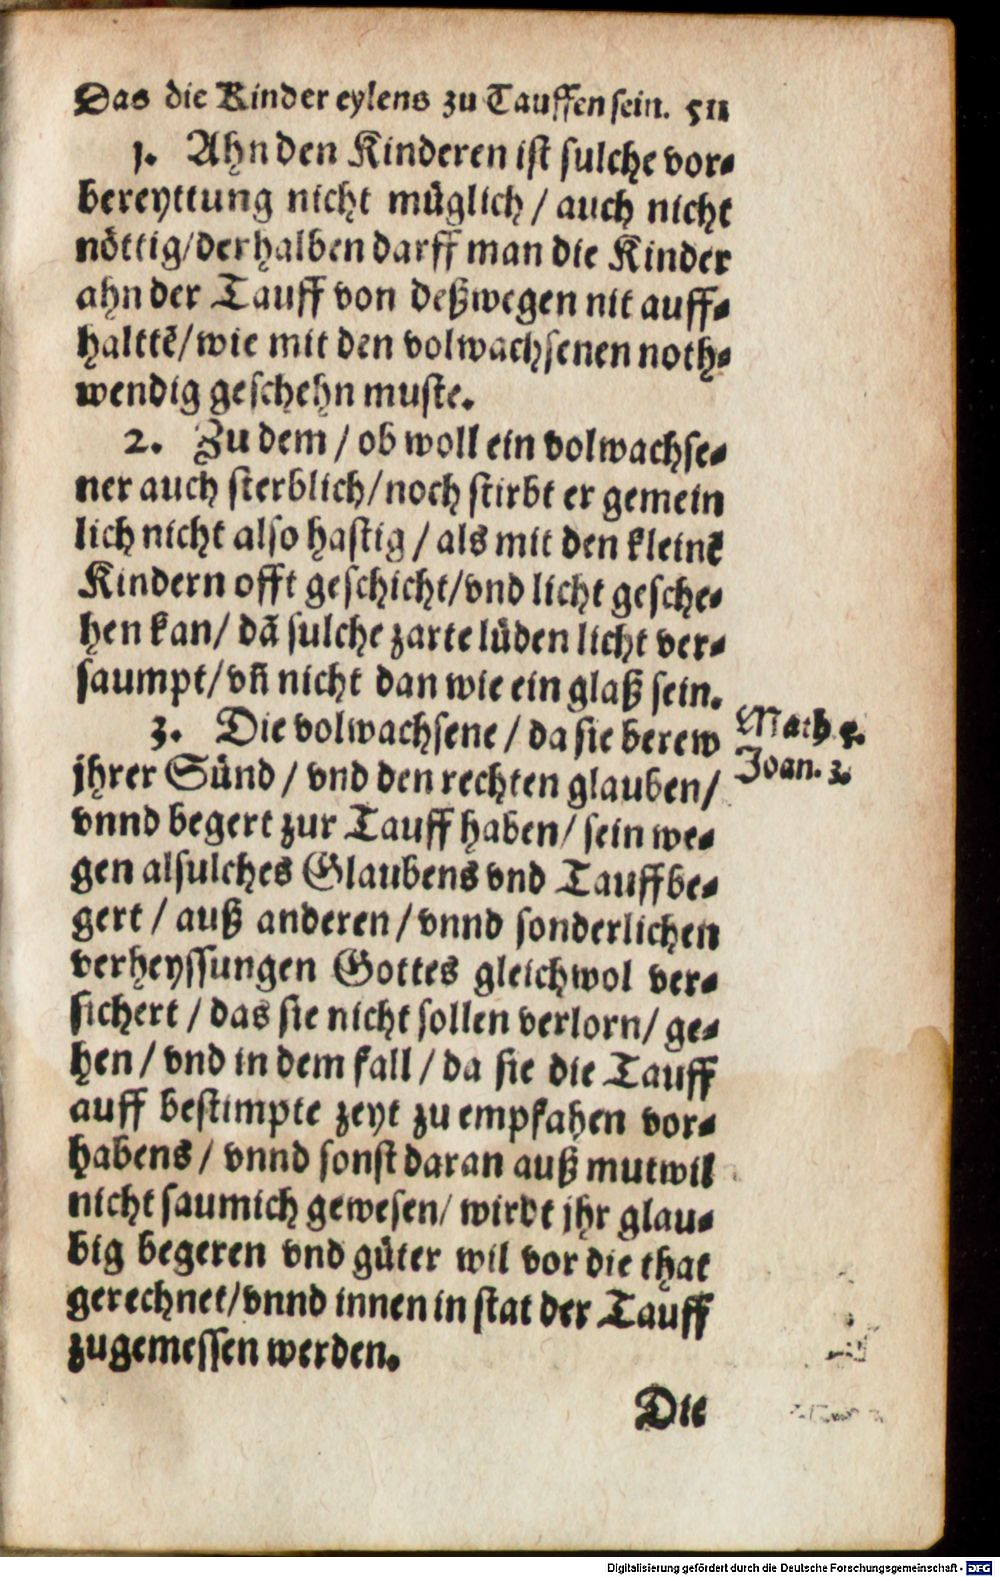 Das die Kinder eylens zu Tauffen sein. 511
1. Ahn den Kinderen ist sulche vor⸗
bereyttung nicht müglich / auch nicht
nöttig/derhalben darff man die Kinder
ahn der Tauff von deßwegen nit auff⸗
halttē/wie mit den volwachsenen noth⸗
wendig geschehn muste.
2. Zu dem / ob woll ein volwachse⸗
ner auch sterblich/noch stirbt er gemein
lich nicht also hastig / als mit den kleinē
Kindern offt geschicht/vnd licht gesche⸗
hen kan/ dã sulche zarte lüden licht ver⸗
saumpt/vñ nicht dan wie ein glaß sein.
3. Die volwachsene / da sie berew
jhrer Sünd / vnd den rechten glauben/
vnnd begert zur Tauff haben/ sein we⸗
gen alsulches Glaubens vnd Tauffbe⸗
gert / auß anderen / vnnd sonderlichen
verheyssungen Gottes gleichwol ver⸗
sichert / das sie nicht sollen verlorn/ ge⸗
hen / vnd in dem fall / da sie die Tauff
auff bestimpte zeyt zu empfahen vor⸗
habens / vnnd sonst daran auß mutwil
nicht saumich gewesen/ wirdt jhr glau⸗
big begeren vnd güter wil vor die that
gerechnet/vnnd innen in stat der Tauff
zugemessen werden.
Die
Math
Joan. 3.
Digitalisierung gefördert durch die Deutsche Forschungsgemeinschaft - DFG